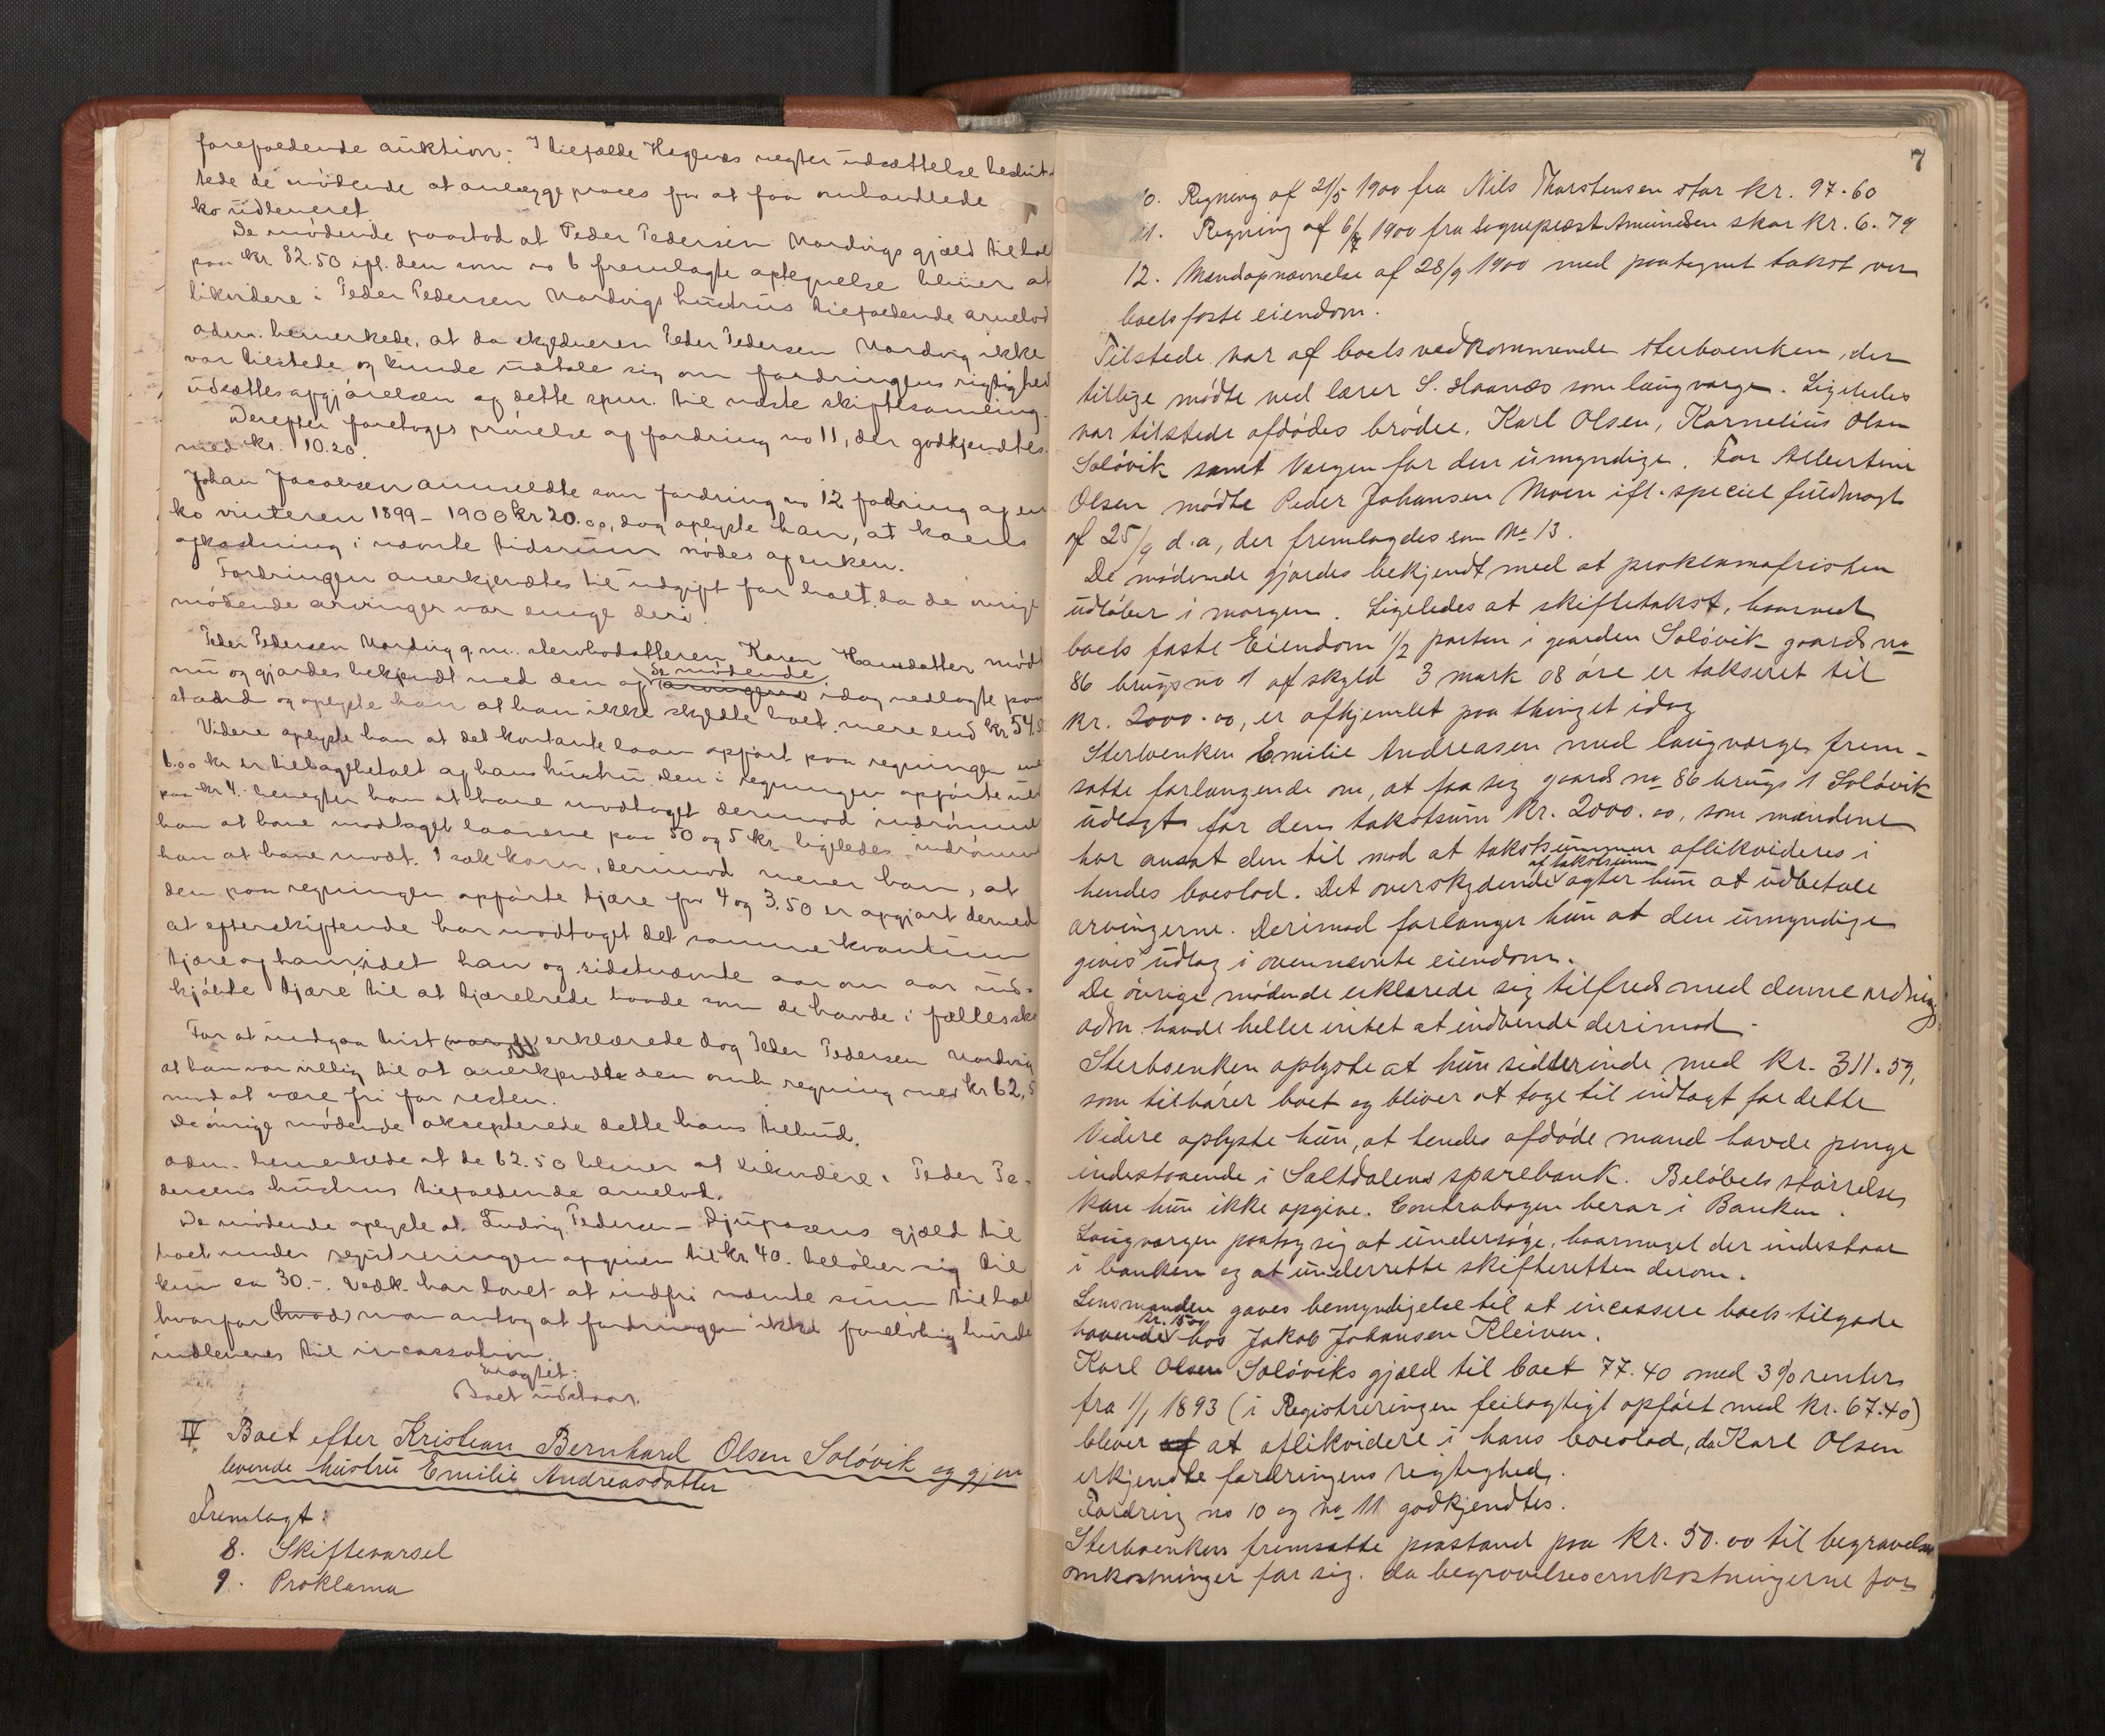 forefaldende auktion. I tilfælde Hegnæs negter udsættelse beslut-
tede de mødende at anlægge proces for at faa omhandlede
ko udleveret
De mødende paastod at Peder Pedersen Nordvigs gjæld til boet
paa kr. 82.50 ifl. den som no 6 fremlagte optegnelse bliver at
likvidere i Peder Pedersen Nordvigs hustrus tilfaldende arvelod
adm. bemerkede, at da skyldneren Peder Pedersen Nordvig ikke
var tilstede og kunde udtale sig om fordringens rigtighed
udsættes afgjørelsen af dette spm. til næste skiftesamling.
Derefter foretoges prøvelse af fordring no 11, der godkjendtes
med kr. 10.20.
Johan Jacobsen anmeldte som fordring no 12 fodring af en
ko vinteren 1899-1900 kr 20.00, dog oplyste han, at koens
afkastning i nævnte tidsrum nødes af enken.
Fordringen anerkjendtes til udgift for boet, da de øvrige
mødende arvinger var enige deri.
Peder Pedersen Nordvig g.m. stervbodatteren Karen Hansdatter mødte
nu og gjordes bekjendt med den af de mødende arvingerne idag nedlagte paa
stand og oplyste han at han ikke skyldte boet mere end kr 54.
Videre oplyste han at det kontante laan opført paa regningen med
6.00 kr er tilbagebetalt af hans hustru. Den i regningen opførte
paa kr 4. benegter han at have modtaget derimod indrømmed
han at have modtaget laanene paa 50 og 5 kr ligeledes indrømmed
han at have modt. 1 sæk korn, derimod mener han, at
den paa regningen opførte tjære for 4 og 3.50 er opgjort dermed
at efterskiftende har modtaget det samme kvantum
tjære af ham, idet han og sidstnævnte aar om aar ind-
kjøbte tjære til at tjærebrede baade som de havde i fællesska
For at undgaa tvist erklærede dog Peder Pedersen Nordvig
at han var villig til at anerkjendte den omh. regning med kr 62,5
mod at være fri for resten.
De øvrige mødende aksepterede dette hans tilbud.
adm. bemerkede at de 62.50 bliver at likvidere i Peder Pe-
dersens hustrus tilfaldende arvelod.
De mødende oplyste at Ludvig Pedersen - Djupaaens gjæld til
boet under registreringen opgiven til kr. 40. beløber sig til
kun ca 30.-. Vedk. har lovet at indfri nævnte sum til boet
hvorfor (hvad) man antog at fordringen ikke foreløbig burde
indleveres til incassation.
Eragtet:
Boet udstaar.
IV Boet efter Kristian Bernhard Olsen Soløvik og gjen
levende hustru Emilie Andreasdatter
Fremlagt:
8. Skiftevarsel
9. Proklama
7
10. Regning af 21/5 1900 fra Nils Thorstensen stor kr. 97.60
11. Regning af 6/7 1900 fra Sogneprest Amundsen stor kr. 6.79
12. Mandopnævnelse af 28/9 1900 med paategnet takst over
boets faste eiendom.
Tilstede var af boets vedkommende sterboenken, der
tillige mødte ved lærer S. Haanæs som laugværge. Ligeledes
var tilstede afdødes brødre, Karl Olsen, Kornelius Olsen
Soløvik samt Værgen for den umyndige. For Albertine
Olsen mødte Peder Johansen Moen ifl. speciel fuldmagt
af 25/9 d.a, der fremlagdes som No 13.
De mødende gjordes bekjendt med at proklamafristen
udløber i morgen. Ligeledes at skiftetakst, hvorved
boets faste Eiendom 1/2 parten i gaarden Soløvik gaards no
86 brugs no 1 af skyld 3 mark 08 øre er takseret til
kr. 2000.00, er afhjemlet paa thinget idag
Sterboenken Emilie Andreasen med laugværge frem-
satte forlangende om, at faa sig gaards no 86 brugs 1 Soløvik
udlagt for den takstsum kr. 2000.00, som mændene
har ansat den til mod at takstsummen aflikvideres i
hendes boeslod. Det overskydende af takstsummen agter hun at udbetale
arvingerne. Derimod forlanger hun at den umyndige
gives udlæg i ovennævnte eiendom.
De øvrige mødende erklærede sig tilfreds med denne ordning.
adm. havde heller intet at indvende derimod.
Sterboenken oplyste at hun sidder inde med kr. 311.59,
som tilhører boet og bliver at tage til indtægt for dette
Videre oplyste hun, at hendes afdøde mand havde penge
indestaaende i Saltdalens sparebank. Beløbets størrelse
kan hun ikke opgive. Contrabogen beror i Banken.
Laugværgen paatog sig at undersøge, hvormeget der indestaar
i banken og at underrette skifteretten derom.
Lensmanden gaves bemyndigelse til at incassere boets tilgode
havende kr. 15.00 hos Jakob Johansen Kleiven.
Karl Olsen Soløviks gjæld til boet 77.40 med 3% renter
fra 1/1 1893 (i Registreringen feilagtigt opført med kr. 67.40)
bliver af at aflikvidere i hans boeslod, da Karl Olsen
erkjendte fordringens rigtighed.
Fordring no 10 og no 11 godkjendtes.
Sterboenken fremsatte paastand paa kr. 50.00 til begravelses
omkostninger for sig. da begravelsesomkostningerne for